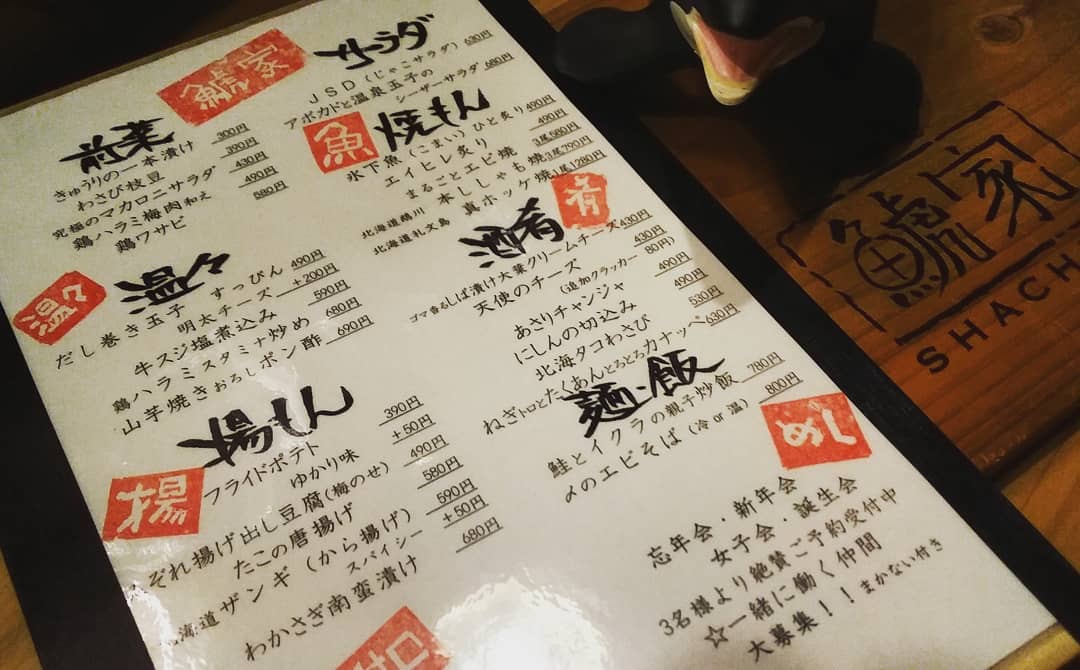 鯱家
前菜
きゅうりの一本漬け 300円
わさび枝豆 390円
究極のマカロニサラダ 430円
鶏ハラミ梅肉和え 490円
鶏ワサビ 580円
サーラダ
JSD(じゃこサラダ) 630円
アボカドと温泉玉子の
シーザーサラダ 680円
魚
焼もん
氷下魚(こまい)ひと炙り 490円
エイヒレ炙り 490円
まるごとエビ焼 3尾580円
北海道鵡川 本ししゃも焼 3尾790円
北海道礼文島 真ホッケ焼 1尾1280円
温々
温々
だし巻き玉子 すっぴん 490円
明太チーズ +200円
牛スジ塩煮込み 590円
鶏ハラミスタミナ炒め 680円
山芋焼きおろしポン酢 690円
肴
酒肴
ゴマ香るしば漬け大葉クリームチーズ 430円
天使のチーズ 430円
(追加クラッカー 80円)
あさりチャンジャ 490円
にしんの切込み 490円
北海タコわさび 530円
ねぎトロとたくあんとろとろカナッペ 630円
揚
揚もん
フライドポテト 390円
ゆかり味 +50円
ぞれ揚げ出し豆腐(梅のせ) 490円
たこの唐揚げ 580円
北海道ザンギ(から揚げ) 590円
スパイシー +50円
わかさぎ南蛮漬け 680円
麺・飯
めし
鮭とイクラの親子炒飯 780円
〆のエビそば(冷 or 温) 800円
忘年会・新年会
女子会・誕生会
3名様より絶賛ご予約受付中
☆一緒に働く仲間
大募集!!まかない付き
鯱家
SHACH